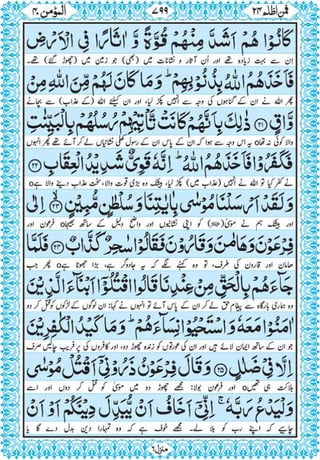 المؤمن ۴۰ ۷۹۹ فمن اظلم ۲۴
كَانُوْا هُمْ اَشَدَّ مِنْهُمْ قُوَّةً وَّ اٰثَارًا فِی الْاَرْضِ
فَاَخَذَهُمُ اللّٰهُ بِذُنُوْبِهِمْ ؕ وَ مَا كَانَ لَهُمْ مِّنَ اللّٰهِ مِنْ
پھر اللہ نے ان کے گناہوں کی وجہ سے انہیں پکڑ لیا، اور ان کیلئے اللہ (کے عذاب) سے بچانے
وَّاقٍ ﴿۲۱﴾ ذٰلِكَ بِاَنَّهُمْ كَانَتْ تَّاْتِیْهِمْ رُسُلُهُمْ بِالْبَیِّنٰتِ
والا کوئی نہ تھا۔ یہ اس وجہ سے ہوا کہ ان کے پاس ان کے رسول کھلی نشانیاں لے کر آئے تھے پھر انہوں
فَكَفَرُوْا فَاَخَذَهُمُ اللّٰهُ ؕ اِنَّهٗ قَوِیٌّ شَدِیْدُ الْعِقَابِ ﴿۲۲﴾
نے کفر کیا تو اللہ نے انہیں (عذاب میں) پکڑ لیا، بیشک وہ بڑی قوت والا، سخت عذاب دینے والا ہے
وَ لَقَدْ اَرْسَلْنَا مُوْسٰی بِاٰیٰتِنَا وَ سُلْطٰنٍ مُّبِیْنٍ ﴿۲۳﴾ اِلٰی
اور بیشک ہم نے موسٰی (علیہ السلام) کو اپنی نشانیوں اور واضح دلیل کے ساتھ بھیجا۔ فرعون اور
فِرْعَوْنَ وَ هَامٰنَ وَ قَارُوْنَ فَقَالُوْا سٰحِرٌ كَذَّابٌ ﴿۲۴﴾ فَلَمَّا
ہامان اور قارون کی طرف، تو وہ کہنے لگے کہ یہ جادوگر ہے، بڑا جھوٹا ہے۔ پھر جب
جَآءَهُمْ بِالْحَقِّ مِنْ عِنْدِنَا قَالُوا اقْتُلُوْۤا اَبْنَآءَ الَّذِیْنَ
وہ ہماری بارگاہ سے پیغامِ حق لے کر ان کے پاس آئے تو انہوں نے کہا: ان لوگوں کے لڑکوں کو قتل کر دو
اٰمَنُوْا مَعَهٗ وَ اسْتَحْیُوْا نِسَآءَهُمْ ؕ وَ مَا كَیْدُ الْكٰفِرِیْنَ
جو ان کے ساتھ ایمان لائے ہیں اور ان کی عورتوں کو زندہ چھوڑ دو، اور کافروں کی پر فریب چالیں صرف
اِلَّا فِیْ ضَلٰلٍ ﴿۲۵﴾ وَ قَالَ فِرْعَوْنُ ذَرُوْنِیْۤ اَقْتُلْ مُوْسٰی
ہلاکت ہی تھیں۔ اور فرعون بولا: مجھے چھوڑ دو میں موسٰی کو قتل کر دوں اور اسے
وَ لْیَدْعُ رَبَّهٗ ۚ اِنِّیْۤ اَخَافُ اَنْ یُّبَدِّلَ دِیْنَكُمْ اَوْ اَنْ
چاہیے کہ اپنے رب کو بلا لے۔ مجھے خوف ہے کہ وہ تمہارا دین بدل دے گا یا
منزل ۶